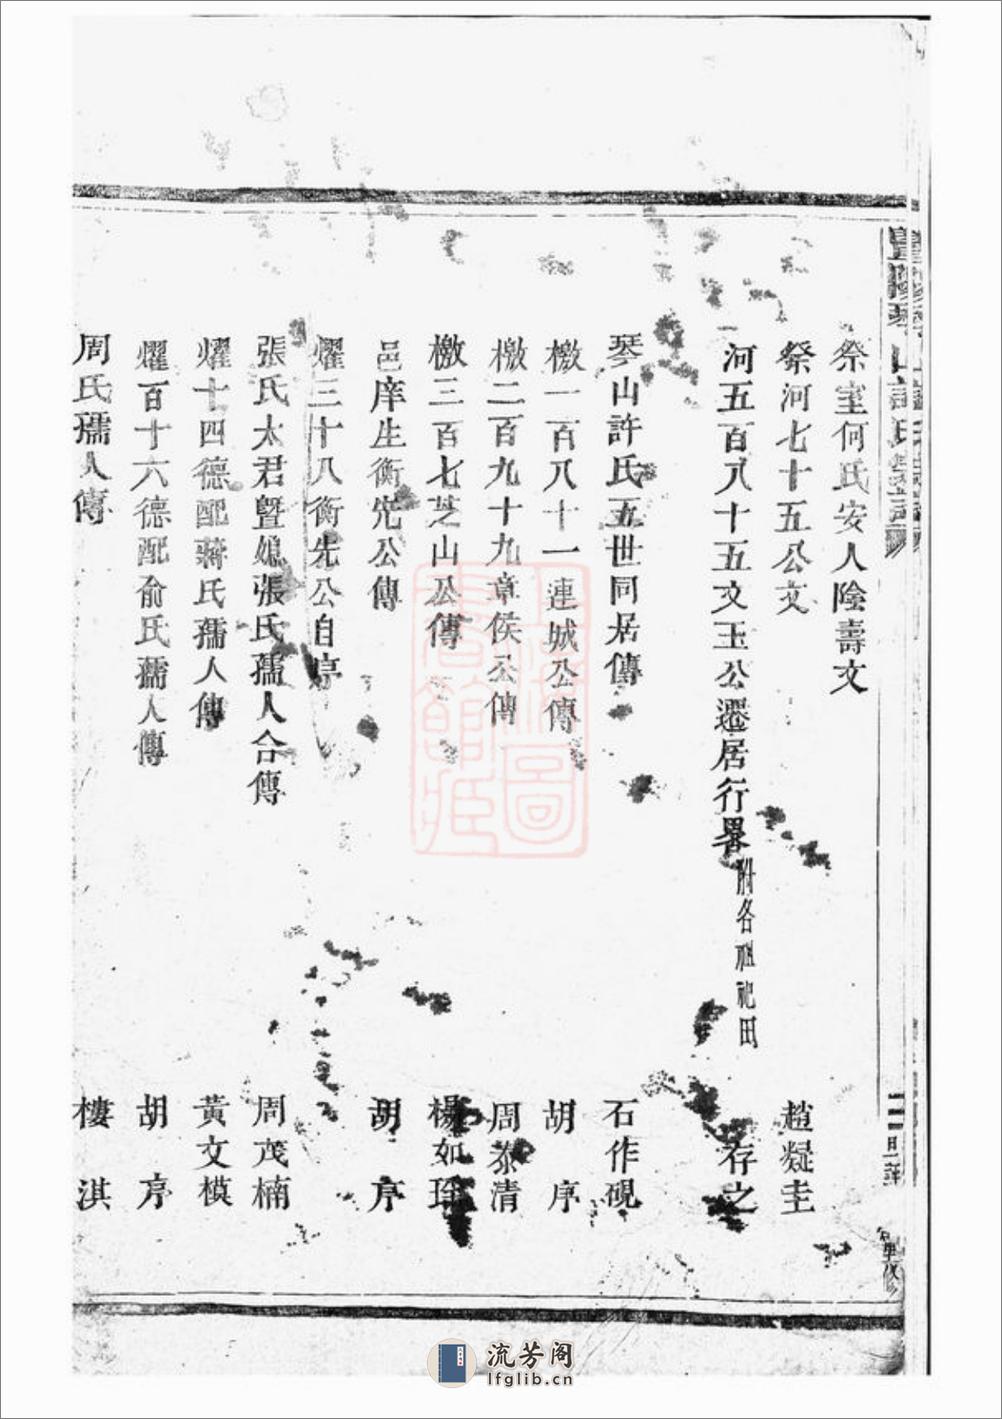 祭室何氏安人陰壽文
祭河七十五公文 趙凝圭
河五百八十五文玉公遷居行畧附各祖祀田 存之
琴山許氏五世同居傳 石作硯
檄一百八十一連城公傳 胡序
檄二百九十九章侯公傳 周泰清
檄三百七芝山公傳 楊如
邑庠生衡先公傳 胡序
燿三十八衡先公自序
張氏太君暨媳張氏孺人合傳 周茂楠
燿十四德配蔣氏孺人傳 黃文模
燿百十六德配俞氏孺人傳 胡序
周氏孺人傳 樓淇
上海圖書館藏
流芳阁
lfglib.cn